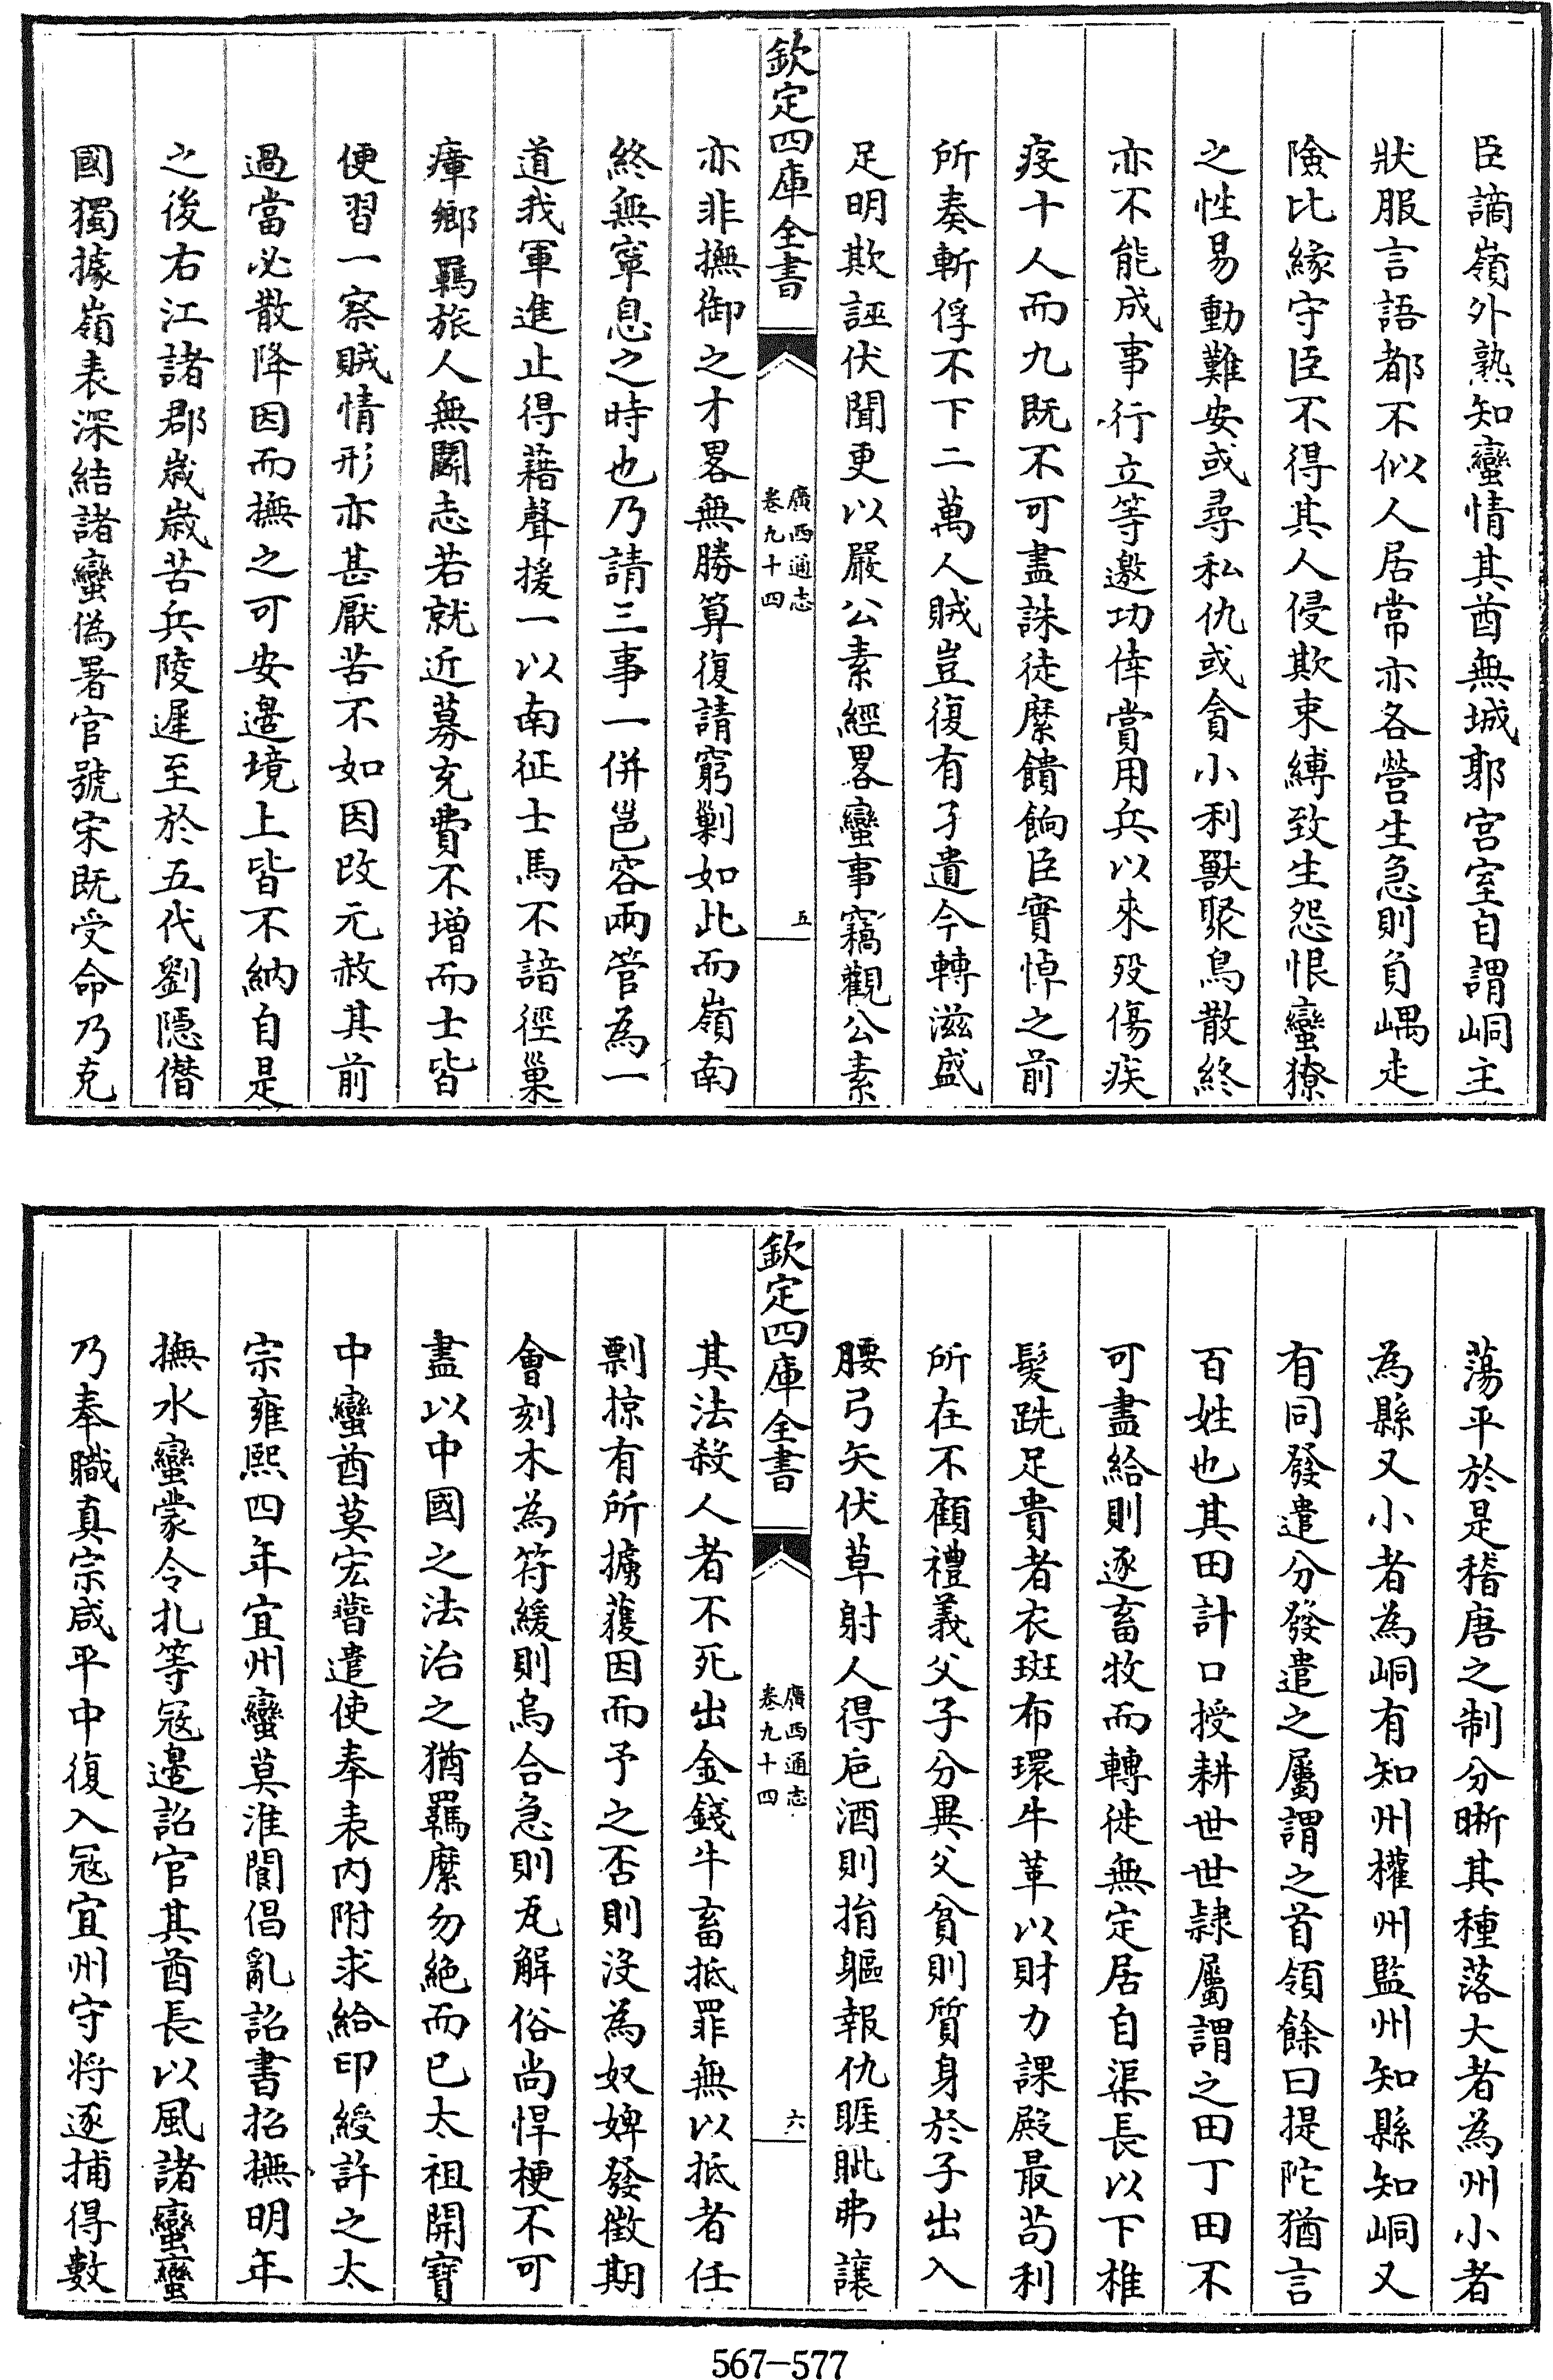 臣謫嶺外熟知蠻情其酋無城郭宫室自謂峒主
狀服言語都不似人居常亦各營生急則負嵎走
險比緣守臣不得其人侵欺束縛致生怨恨蠻獠
之性易動難安或尋私仇或貪小利獸聚鳥散終
亦不能成事行立等邀功倖賞用兵以來殁傷疾
疫十人而九既不可盡誅徒縻饋餉臣實悼之前
所奏斬俘不下二萬人賊豈復有孑遺今轉滋盛
足明欺誣伏聞更以嚴公素經畧蠻事竊觀公素
欽定四庫全書
廣西通志
卷九十四
五
亦非撫御之才畧無勝算復請窮剿如此而嶺南
終無寧息之時也乃請三事一併邕容兩管為一
道我軍進止得藉聲援一以南征士馬不諳徑巢
瘴鄉羈旅人無鬭志若就近募充費不增而士皆
便習一察賊情形亦甚厭苦不如因改元赦其前
過當必散降因而撫之可安邉境上皆不納自是
之後右江諸郡歲歲苦兵陵遲至於五代劉隱僭
國獨據嶺表深結諸蠻偽署官號宋既受命乃克
蕩平於是稽唐之制分晰其種落大者為州小者
為縣又小者為峒有知州權州監州知縣知峒又
有同發遣分發遣之屬謂之首領餘曰提陀猶言
百姓也其田計口授耕世世隷屬謂之田丁田不
可盡給則逐畜牧而轉徙無定居自渠長以下椎
髮跣足貴者衣斑布環牛革以財力課殿最茍利
所在不顧禮義父子分異父貧則質身於子出入
腰弓矢伏草射人得巵酒則捐軀報仇睚眦弗讓
欽定四庫全書
廣西通志
卷九十四
六
其法殺人者不死出金錢牛畜抵罪無以抵者任
剽掠有所擄獲因而予之否則沒為奴婢發徵期
會刻木為符緩則烏合急則瓦解俗尚悍梗不可
盡以中國之法治之猶羈縻勿絶而已太祖開寶
中蠻酋莫宏㬱遣使奉表内附求給印綬許之太
宗雍熙四年宜州蠻莫淮閬倡亂詔書招撫明年
撫水蠻蒙令扎等冦邉詔官其酋長以風諸蠻蠻
乃奉職真宗咸平中復入冦宜州守将逐捕得數
567—577